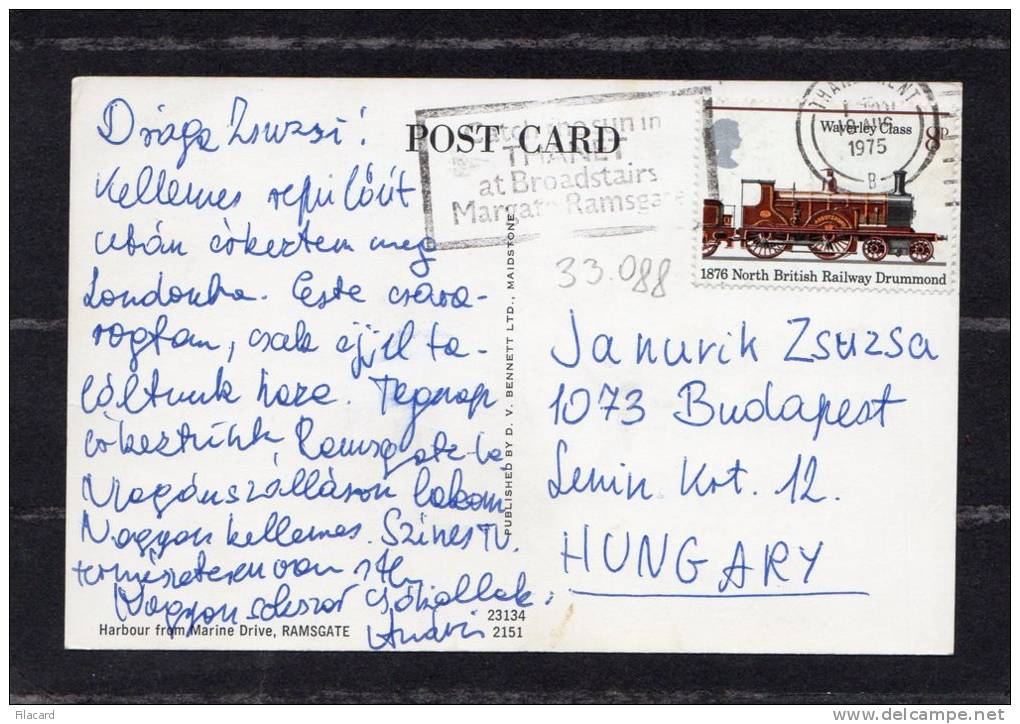 Drága Zsuzsi!
Kellemes repülőút
után érkeztem meg
Londonba. Este csava-
rogtam, csak éjjel ta-
láltunk haza. Tegnap
érkeztünk Ramsgate-be
Magánszálláson lakom
Nagyon kellemes. Színes TV.
természetesen van stb.
Nagyon sokszor csókollak:
Harbour from Marine Drive, RAMSGATE
23134
2151
POST CARD
PUBLISHED BY D. V. BENNETT LTD., MAIDSTONE.
Catch the sun in
THANET
at Broadstairs
Margate Ramsgate
33.088
THANET KENT
18 AUG
1975
B
Waverley Class 8P
1876 North British Railway Drummond
Janurik Zsuzsa
1073 Budapest
Lenin Krt. 12.
HUNGARY
Filacard
www.delcampe.net